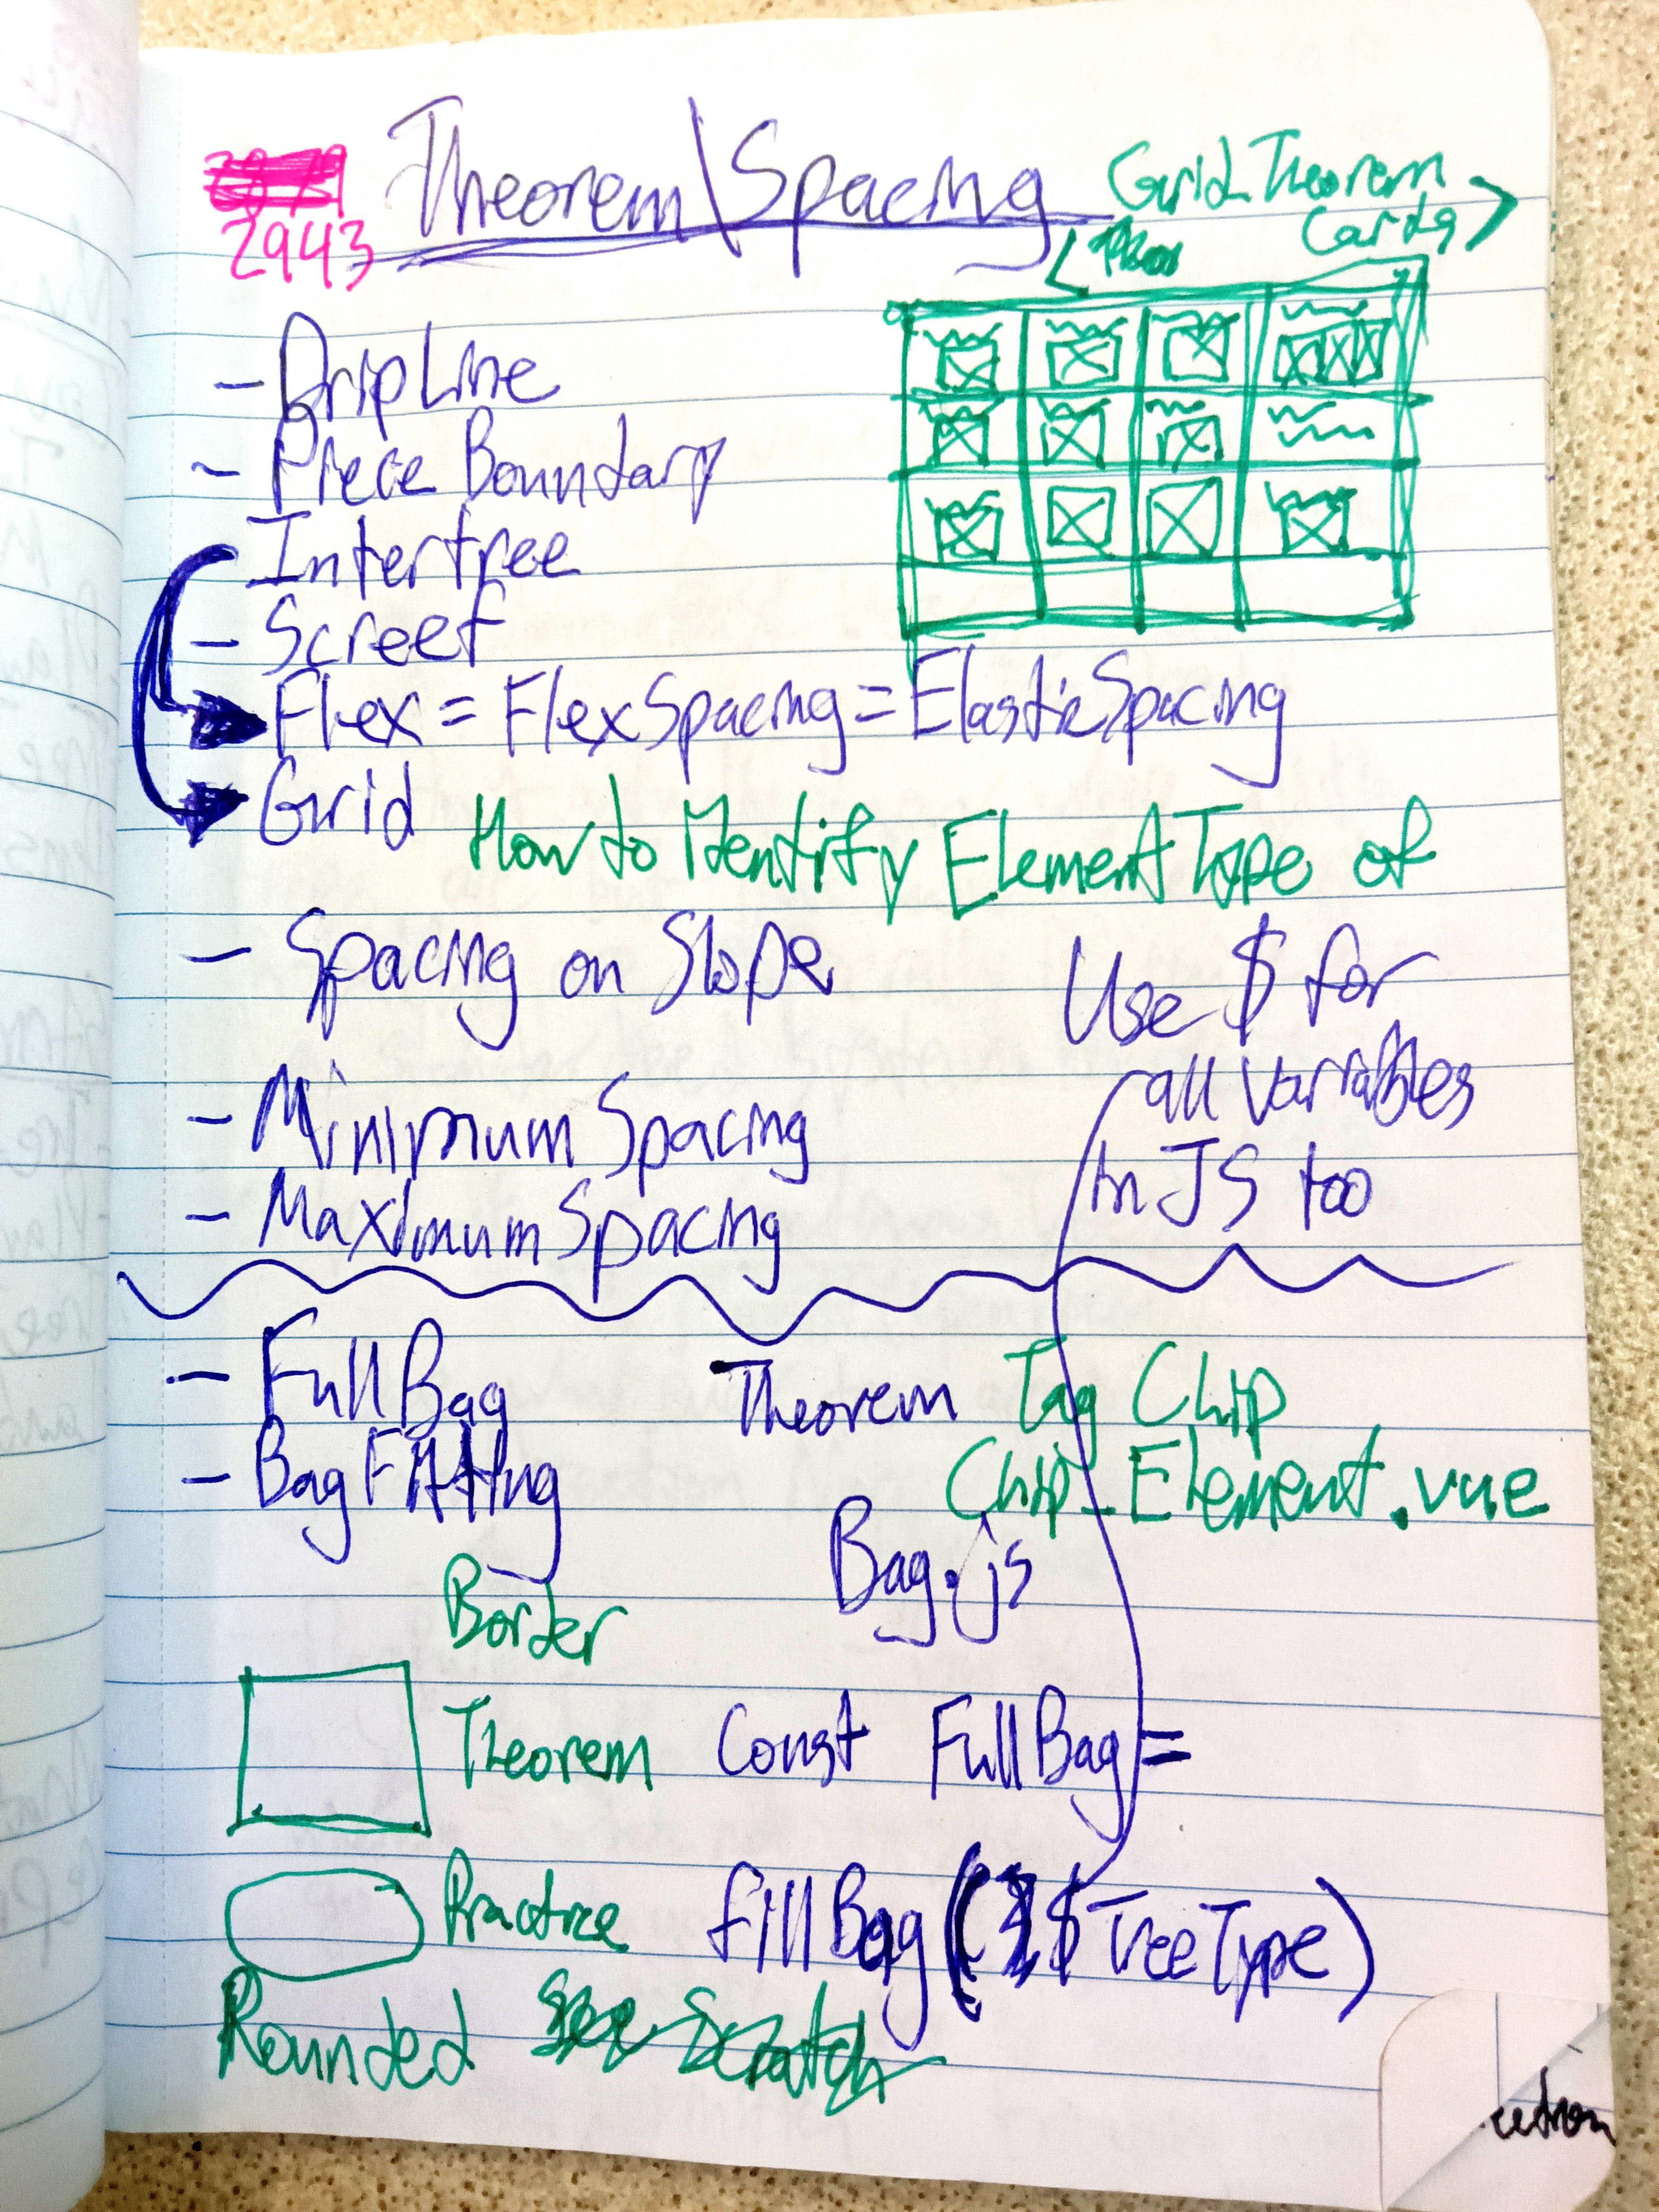 2943
Theorem\Spacing
Grid_Theorem
Cards
- DripLine
- Piece Boundary
Intertree
- Screef
Flex = FlexSpacing = ElasticSpacing
Grid
How to Identify Element Type of
- Spacing on Slope
Use $ for
all variables
in JS too
- Minimum Spacing
- Maximum Spacing
- FullBag
Theorem Tag Chip
- BagFitting
Chip_Element.vue
Bag.js
Border
Theorem
Const FullBag =
Practice
fillBag( $TreeType)
Rounded